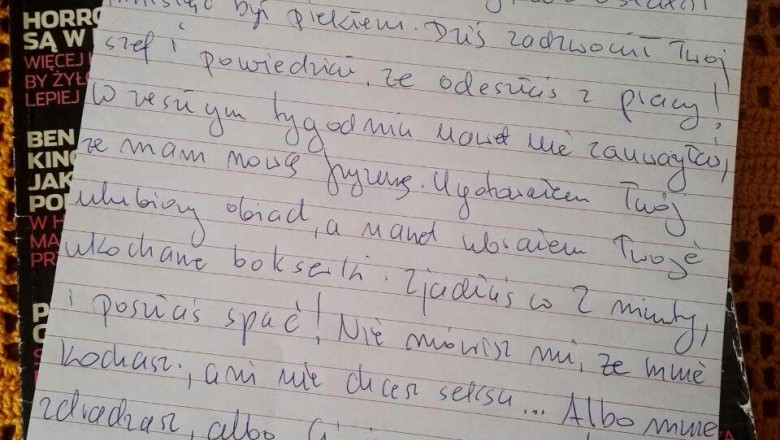 być piekłem. Dziś zadzwonił Twój
szef i powiedział, że odeszłaś z pracy!
W zeszłym tygodniu nawet nie zauważyłaś,
że mam nową fryzurę. Ugotowałem Twój
ulubiony obiad, a nawet ubrałem Twoje
ukochane bokserki. Zjadłaś w 2 minuty,
i poszłaś spać! Nie mówisz mi, że mnie
kochasz, ani nie chcesz seksu... Albo mnie
zdradzasz, albo
HORRO
SĄ W
WIĘCEJ
BY ŻYŁO
LEPIEJ
BEN
KING
JAK
PO
W H
MA
PR